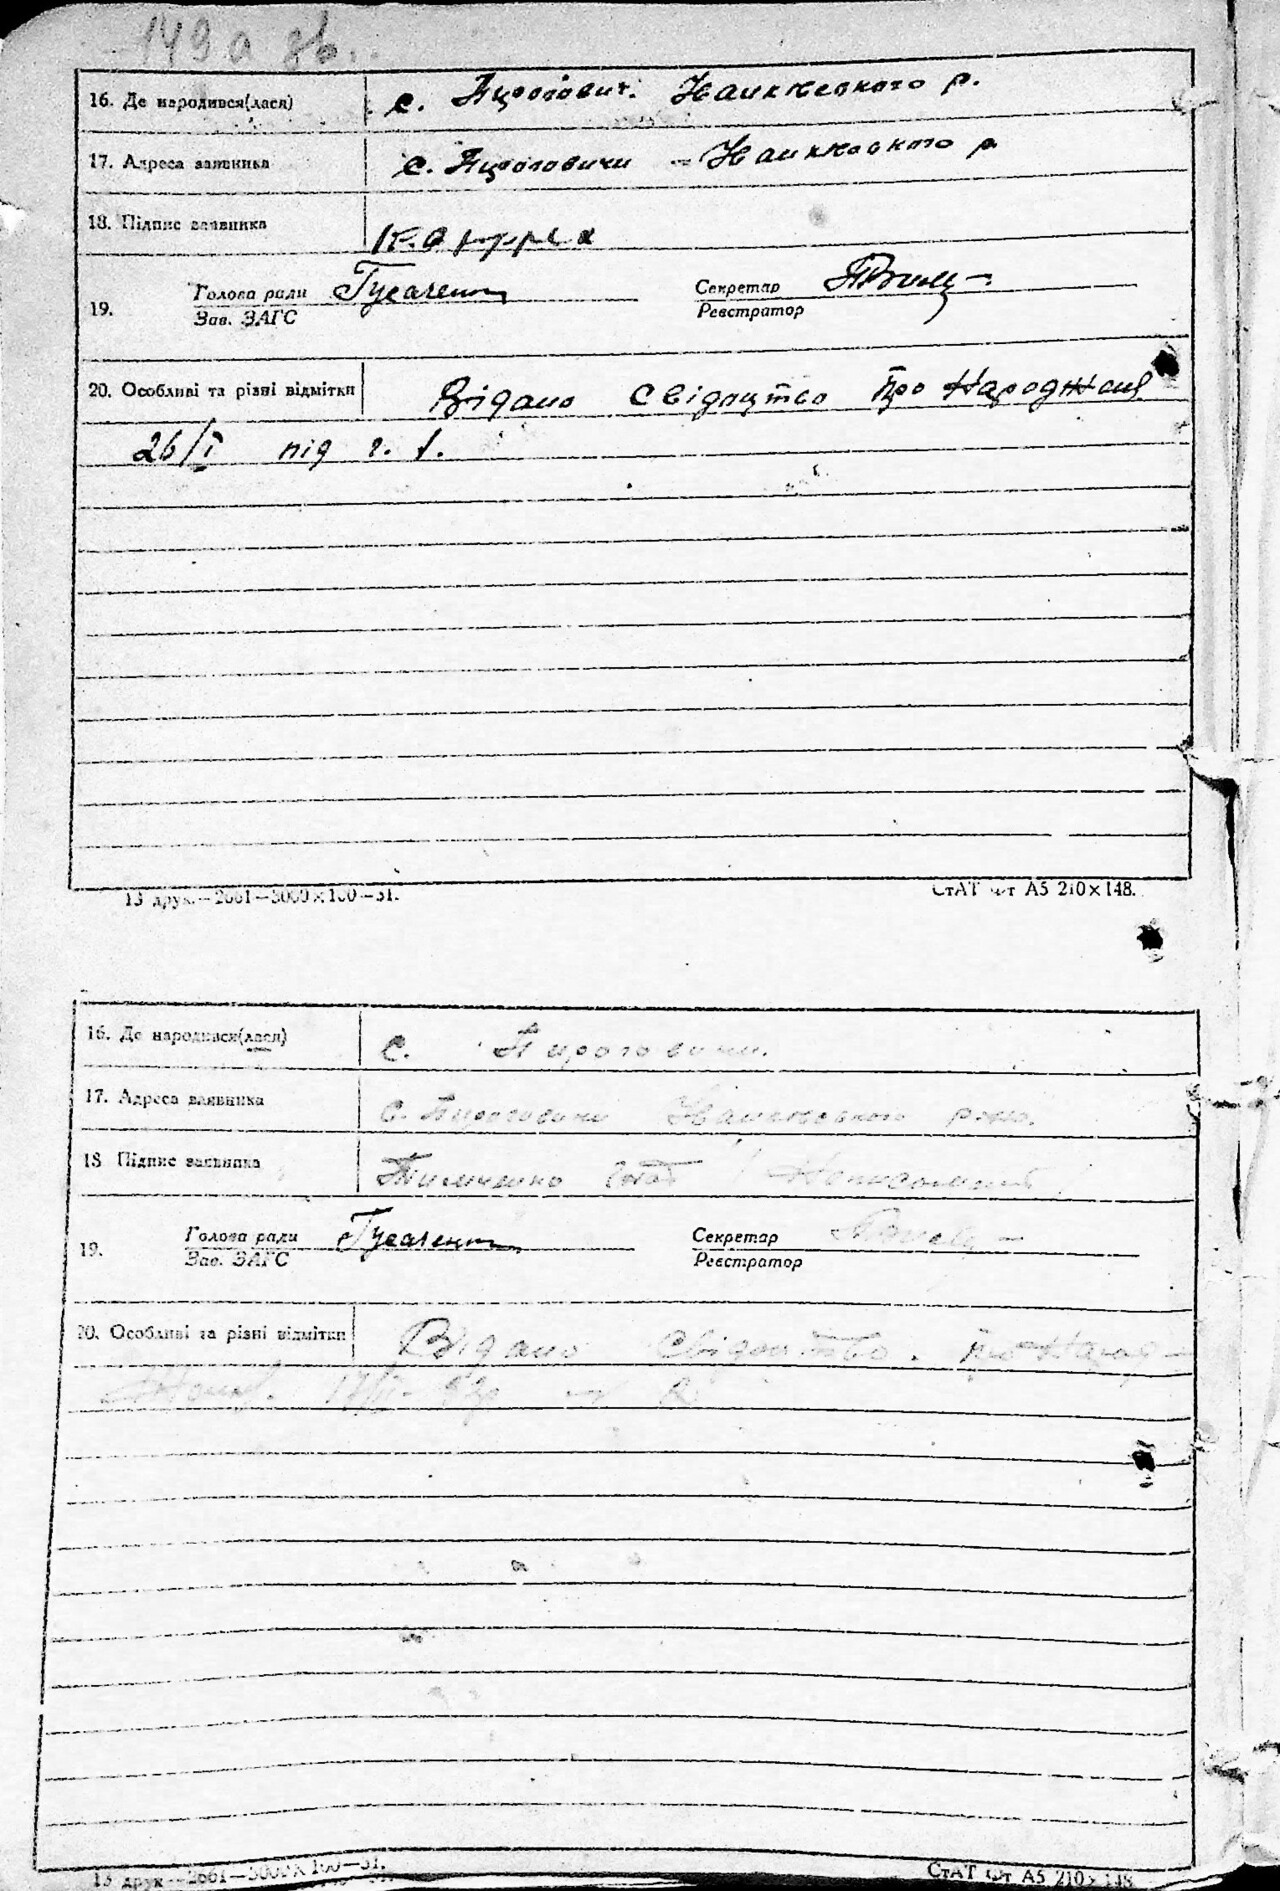 149 а зв.
16. Де народився(лася) с. Пирогович. Іванківського р.
17. Адреса заявника с. Пироговичи - Іванківського р
18. Підпис заявника
Голова ради Гусаченко Секретар
19.
Зав. ЗАГС Реєстратор
20. Особливі та різні відмітки Видано свідоцтво про народження
26/І під г. 1.
13 друк.—2661—3000×100—51. СтАТ Фт А5 210×148.
16. Де народився(лася) с. Пироговичи.
17. Адреса заявника с. Пироговичи Іванківського р-ну.
18 Підпис заявника Тимченко
Голова ради Гусаченко Секретар
19.
Зав. ЗАГС Реєстратор
20. Особливі та різні відмітки Видано свідоцтво. про народ-
ження. 17/ІІ
13 друк.—2661—3000×100—51. СтАТ Фт А5 210×148